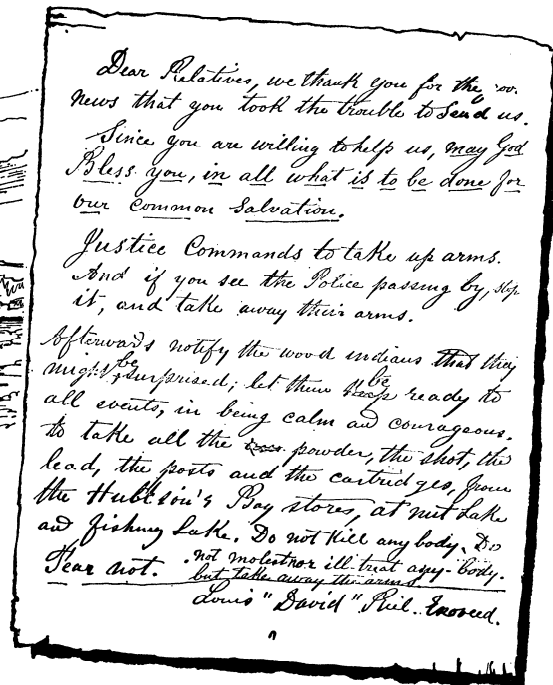 Dear Relatives, we thank you for the
news that you took the trouble to send us.
Since you are willing to help us, may God
Bless you, in all what is to be done for
our common Salvation.
Justice Commands to take up arms.
And if you see the Police passing by, stop
it, and take away their arms.
Afterwards notify the wood indians that they
might be surprised; let them be ready to
all events, in being calm and courageous.
to take all the powder, the shot, the
lead, the posts and the cartridges, from
the Hudson's Bay stores, at nut Lake
and fishing Lake. Do not kill any body. Do
not molest nor ill-treat any-body.
Fear not.
but take away the arms
Louis "David" Riel. Exoveed.